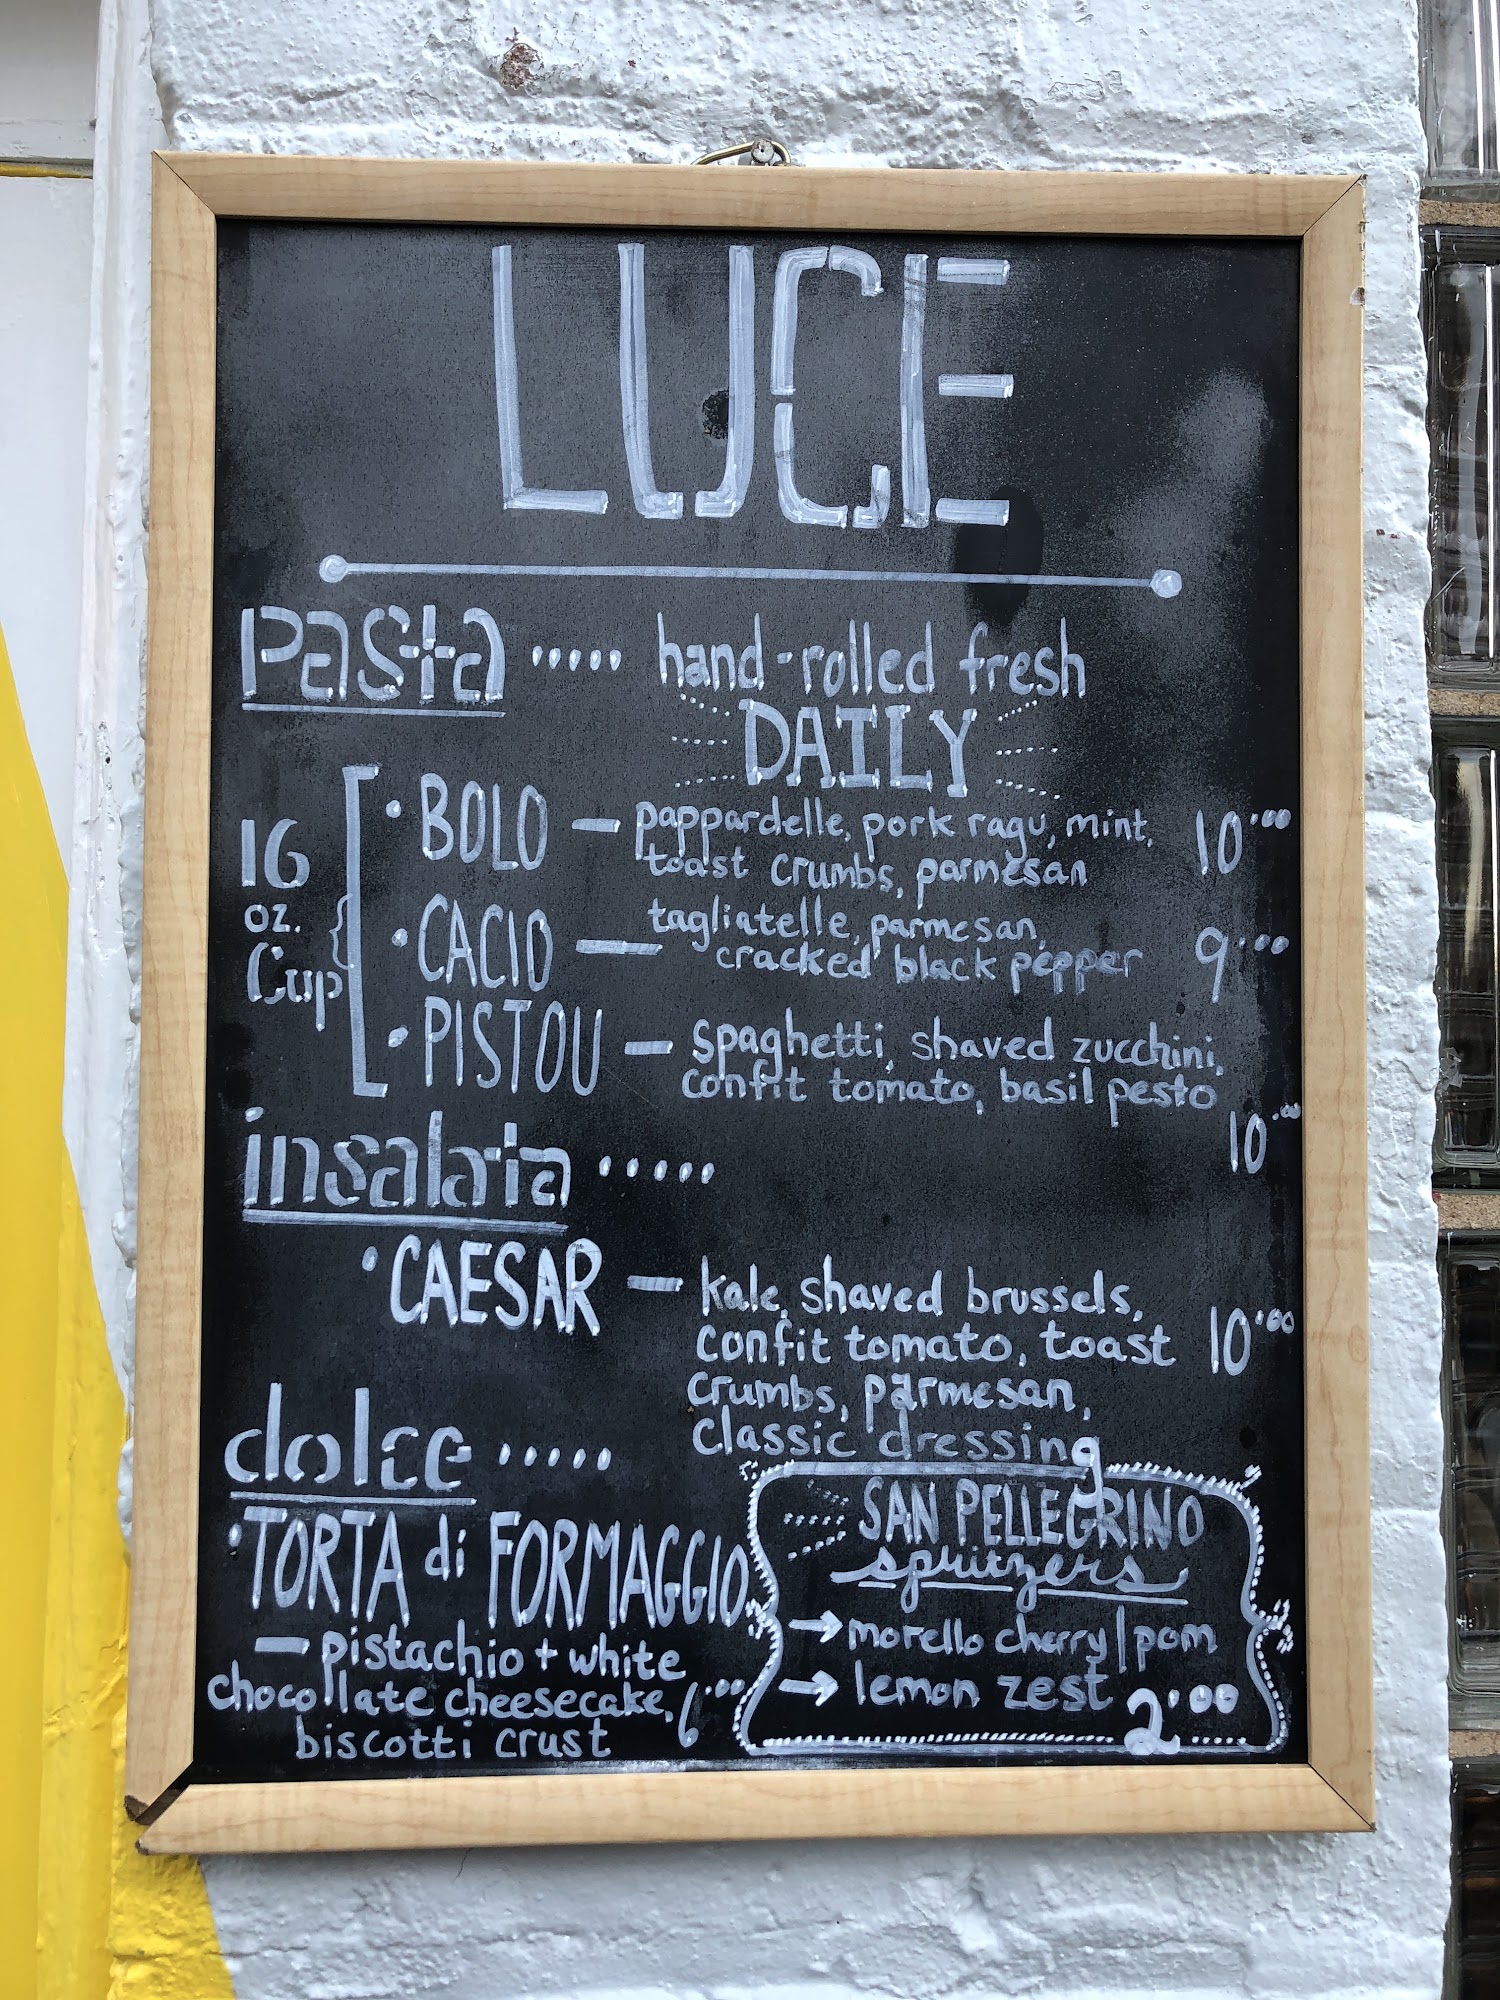 LUCE
pasta ..... hand-rolled fresh
DAILY
16 oz. Cup
• BOLO — pappardelle, pork ragu, mint, 10.00
toast crumbs, parmesan
• CACIO — tagliatelle, parmesan,
cracked black pepper 9.00
• PISTOU — spaghetti, shaved zucchini,
confit tomato, basil pesto
10.00
insalata .....
• CAESAR — kale, shaved brussels,
confit tomato, toast 10.00
crumbs, parmesan,
classic dressing
dolce .....
• TORTA di FORMAGGIO
— pistachio + white
chocolate cheesecake, 6.00
biscotti crust
SAN PELLEGRINO
spritzers
→ morello cherry | pom
→ lemon zest
2.00